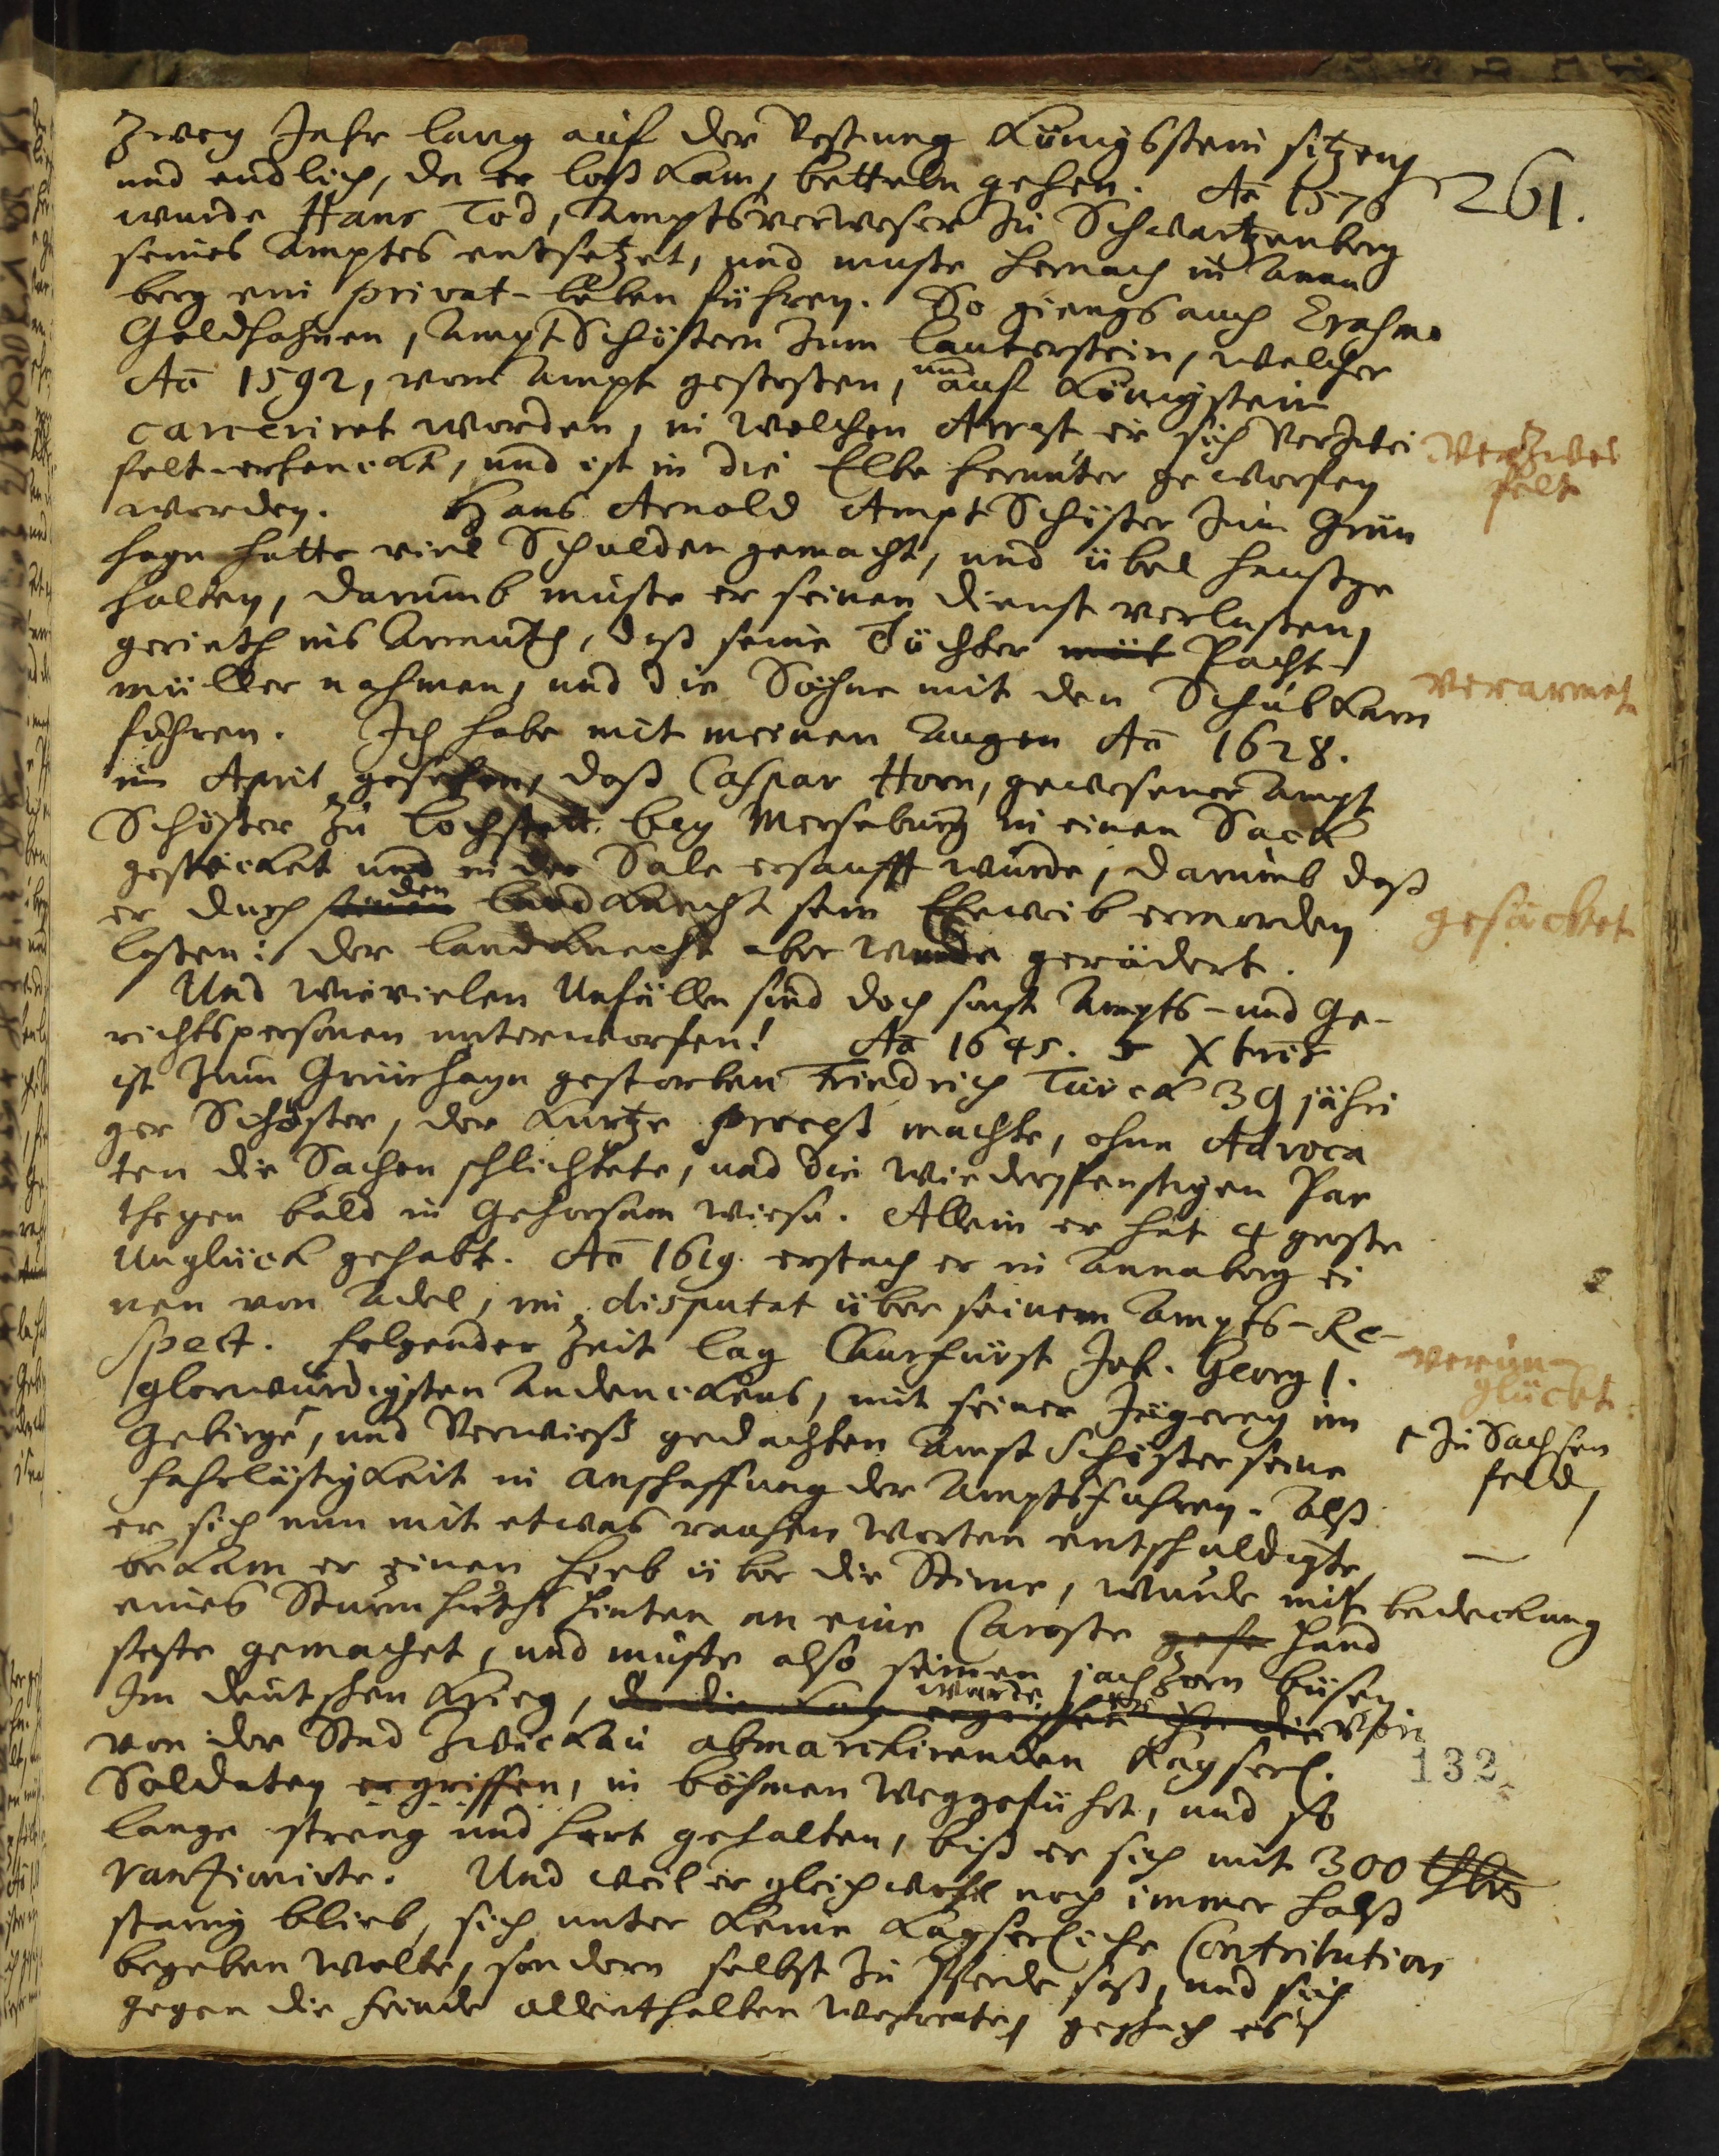 zwey Jahr lang auf der Vestung Königsstein sitzen,
und endlich, da er loß kam, betteln gehen. Aō 1576
261.
wurde Hans Tod, Amptsverweser zu Schwartzenberg
seines Amptes entsetzet, und muste hernach in Anna
berg ein privat-leben führen. So giengs auch Erasmo
Goldhahnen, AmptSchößern zum Lauterstein, welcher
Aō 1592, vom Ampt gestossen, und auf Königstein
carceriret worden, in welchen Arrest er sich verzwei
felt erhenckt, und ist in die Elbe herunter geworffen
verzwei
felt
worden. Hans Arnold AmptSchößer zum Grün
hayn hatte viel Schulden gemacht, und übel haußge
halten, darumb muste er seinen dienst verlassen,
gerieth ins Armuth, daß seine Töchter Pacht-
müller nahmen, und die Söhne mit den Schubkarn
verarmet
fuhren. Ich habe mit meinen Augen Aō 1628.
im April gesehen, daß Caspar Horn, gewesener Ampt
Schößer zu Lochstett bey Merseburg in einen Sack
gestecket und in der Sale ersaufft wurde, darumb daß
er durch den landknecht sein Eheweib ermorden
gesäcket
lassen: der landknecht aber wurde gerädert.
Und wievielen Unfällen sind doch sonst Ampts- und Ge-
richtspersonen unterworfen! Aō 1645. 5 Xbris
ist zum Grünhayn gestorben Friedrich Türck 39 jähri
ger Schößer, der kurtze Proceß machte, ohne Advoca
ten die Sachen schlichtete, und die wiederspenstigen Par
theyen bald in Gehorsam wiese. Allein er hat 4 grosse
Unglück gehabt. Aō 1619. erstach er in Annaberg ei
nen von Adel, im disputat über seinem Ampts-Re-
spect. folgender Zeit lag Churfürst Joh. Georg 1.
verun-
glückt.
glorwürdigsten Andenckens, mit seiner Jägerey im
Gebirge, und Verwieß gedachten AmptSchösser seine
zu Sachsen
feld,
fahrlässigkeit in anschaffung der Amptsfuhren. Alß
er sich nun mit etwas rauhen Worten entschuldigte,
bekam er einen hieb über die Stirne, wurde mit bedeckung
eines Sturmhuths hinten an eine Carosse hand
feste gemachet, und muste also seinen jachzorn büsen.
Im deutschen Krieg, wurde er von
von der Stad Zwickau abmarchirenden Kayserl.
132
Soldaten ergriffen, in Böhmen weggeführt, und so
lange streng und hart gehalten, biß er sich mit 300 thlr
rantzionirte. Und weil er gleichwohl noch immer halß
starrig blieb, sich unter keine Kayserliche Contribution
begeben wolte, sondern selbst zu Pferde saß, und sich
gegen die feinde allenthalben wehrete, geschach es